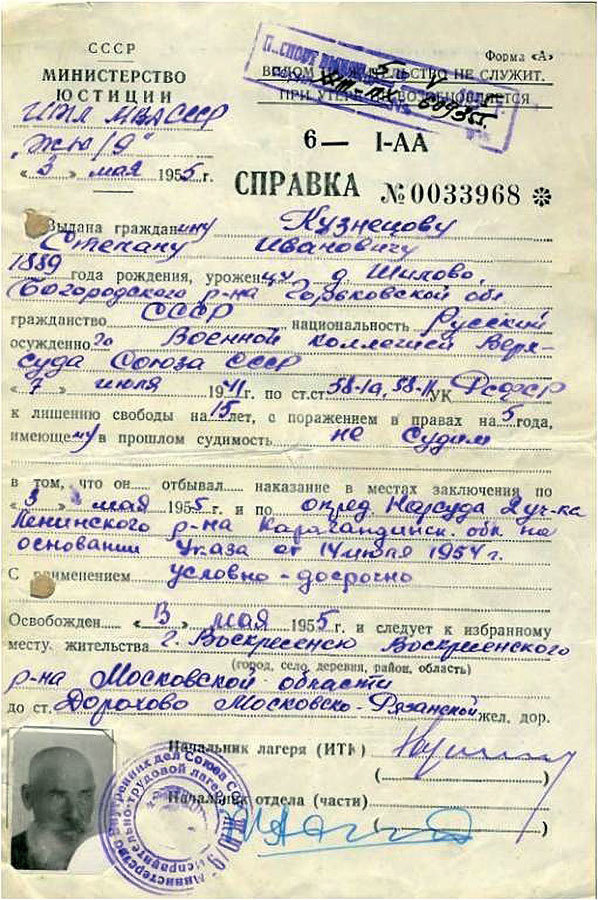 СССР
МИНИСТЕРСТВО
ЮСТИЦИИ
ИТЛ МВД СССР
„ЖЮ/9"
« 3 » мая 1955 г.
Форма «А»
ВИДОМ НА ЖИТЕЛЬСТВО НЕ СЛУЖИТ.
ПРИ УТЕРЕ НЕ ВОЗОБНОВЛЯЕТСЯ
6— I-АА
СПРАВКА №0033968 ✻
Выдана гражданину Кузнецову
Степану Ивановичу
1889 года рождения, уроженцу д. Шилово,
Богородского р-на Горьковской обл
гражданство СССР национальность Русский
осужденного Военной коллегией Верх-
суда Союза ССР
« 7 » июля 1941 г. по ст.ст 58-1а, 58-11 УК РСФСР
к лишению свободы на 15 лет, с поражением в правах на 5 года,
имеющему в прошлом судимость не судим
в том, что он отбывал наказание в местах заключения по
« 3 » мая 1955 г. и по опред Нарсуда 2 уч-ка
Ленинского р-на Карагандинск. обл на
основании Указа от 14 июля 1954 г.
С применением условно-досрочно
Освобожден « 3 » мая 1955 г. и следует к избранному
месту жительства г. Воскресенск Воскресенского
(город, село, деревня, район, область)
р-на Московской области
до ст. Дорохово Московско-Рязанской жел. дор.
Начальник лагеря (ИТК)
Начальник отдела (части)